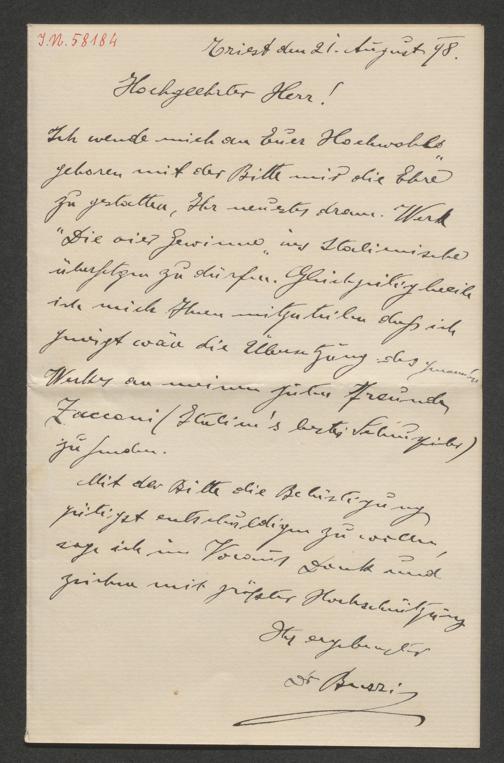 J.N. 58184
Triest den 21. August 98.
Hochgeehrter Herr!
Ich wende mich an Euer Hochwohl„
geboren mit der Bitte mir die Ehre
zu gestatten, Ihr neuestes dram. Werk
"Die vier Gewinne„ ins Italienische
übersetzen zu dürfen. Gleichzeitig beeile
ich mich Ihnen mitzuteilen daß ich
geneigt wäre die Übersetzung des genannten
Werkes an meinen guten Freunde
Zacconi (Italien's bester Schauspieler)
zu senden.
Mit der Bitte die Belästigung
gütigst entschuldigen zu wollen,
sage ich im Voraus Dank und
zeichne mit größter Hochschätzung
Ihr ergebenster
Dr